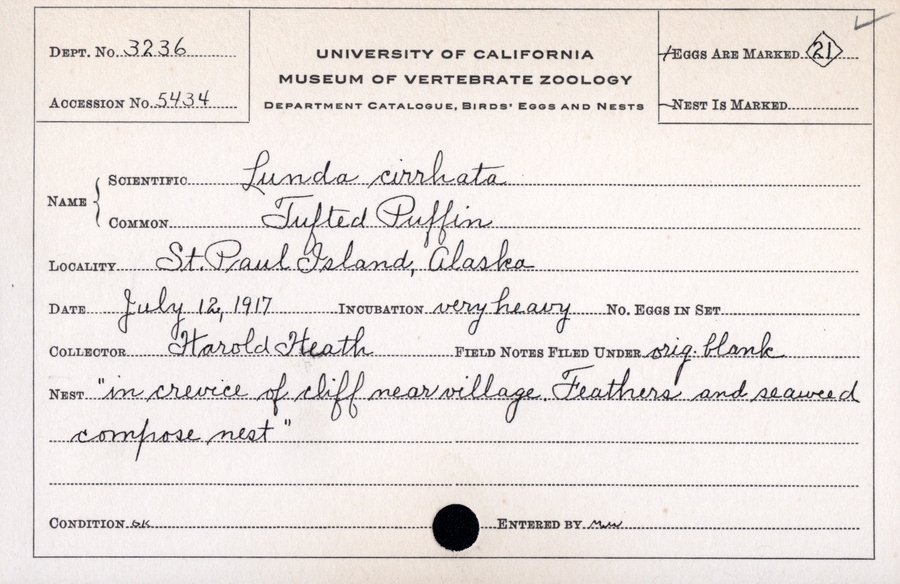 Dept. No. 3236
Accession No. 5434
UNIVERSITY OF CALIFORNIA
MUSEUM OF VERTEBRATE ZOOLOGY
Department Catalogue, Birds' Eggs and Nests
Eggs Are Marked 21
Nest Is Marked
Name
Scientific Lunda cirrhata
Common Tufted Puffin
Locality St. Paul Island, Alaska
Date July 12, 1917 Incubation very heavy No. Eggs in Set
Collector Harold Heath Field Notes Filed Under orig. blank
Nest "in crevice of cliff near village. Feathers and seaweed
compose nest"
Condition ok Entered by